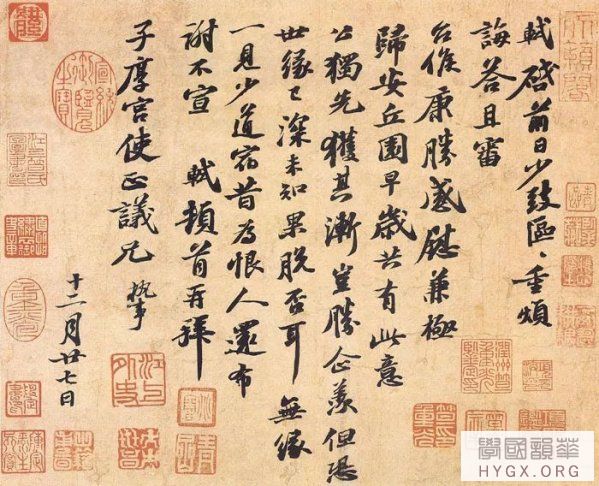 軾啓前日少致區〻重煩
誨答且審
台候康勝感慰兼極
歸安丘園早歲共有此意
公獨先獲其漸豈勝企羨但恐
世緣已深未知果脫否耳無緣
一見少道宿昔為恨人還布
謝不宣 軾頓首再拜
子厚宮使正議兄 執事
十二月廿七日
學國韻華
HYGX.ORG